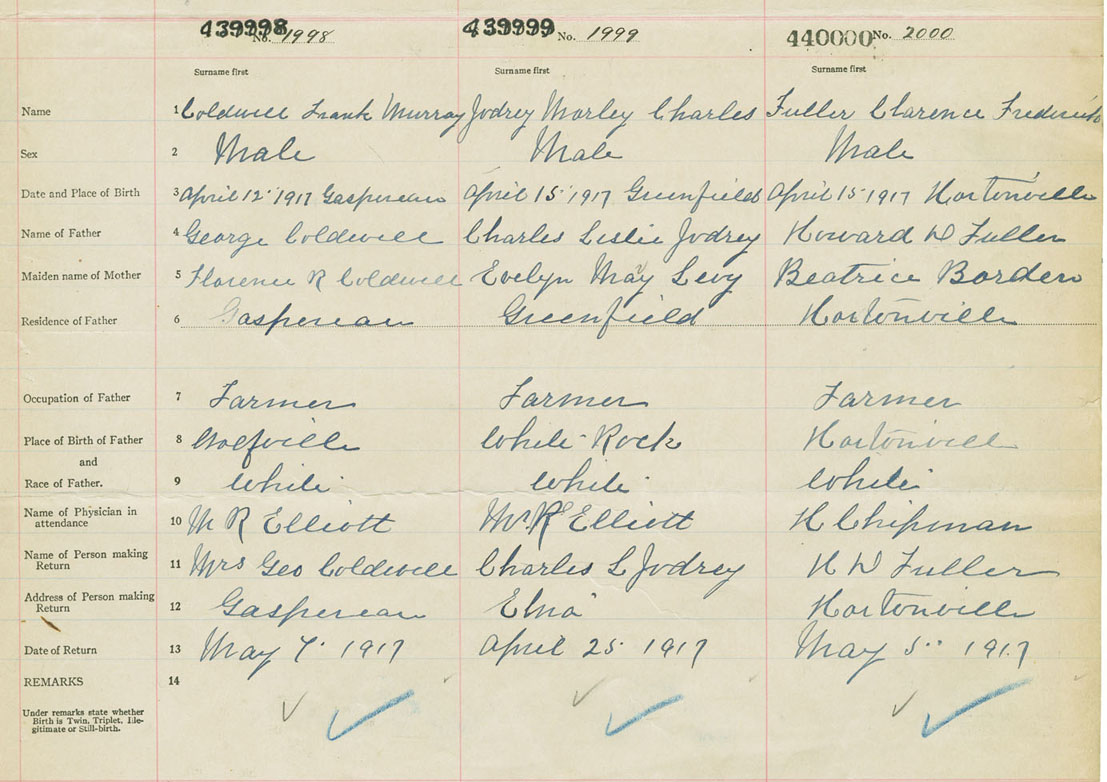 439998 No. 1998 439999 No. 1999 440000 No. 2000
Surname first Surname first Surname first
Name 1 Coldwell Frank Murray Jodrey Morley Charles Fuller Clarence Frederick
Sex 2 Male Male Male
Date and Place of Birth 3 April 12 1917 Gaspereau April 15 1917 Greenfield April 15 1917 Hortonville
Name of Father 4 George Coldwell Charles Leslie Jodrey Howard W Fuller
Maiden name of Mother 5 Florence R Coldwell Evelyn May Levy Beatrice Borden
Residence of Father 6 Gaspereau Greenfield Hortonville
Occupation of Father 7 Farmer Farmer Farmer
Place of Birth of Father 8 Wolfville White Rock Hortonville
and
Race of Father. 9 White White White
Name of Physician in
attendance 10 M R Elliott M R Elliott H Chipman
Name of Person making
Return 11 Mrs Geo Coldwell Charles L Jodrey H W Fuller
Address of Person making
Return 12 Gaspereau Hortonville
Date of Return 13 May 7 1917 April 25 1917 May 5 1917
REMARKS 14
Under remarks state whether
Birth is Twin, Triplet, Ille-
gitimate or Still-birth.